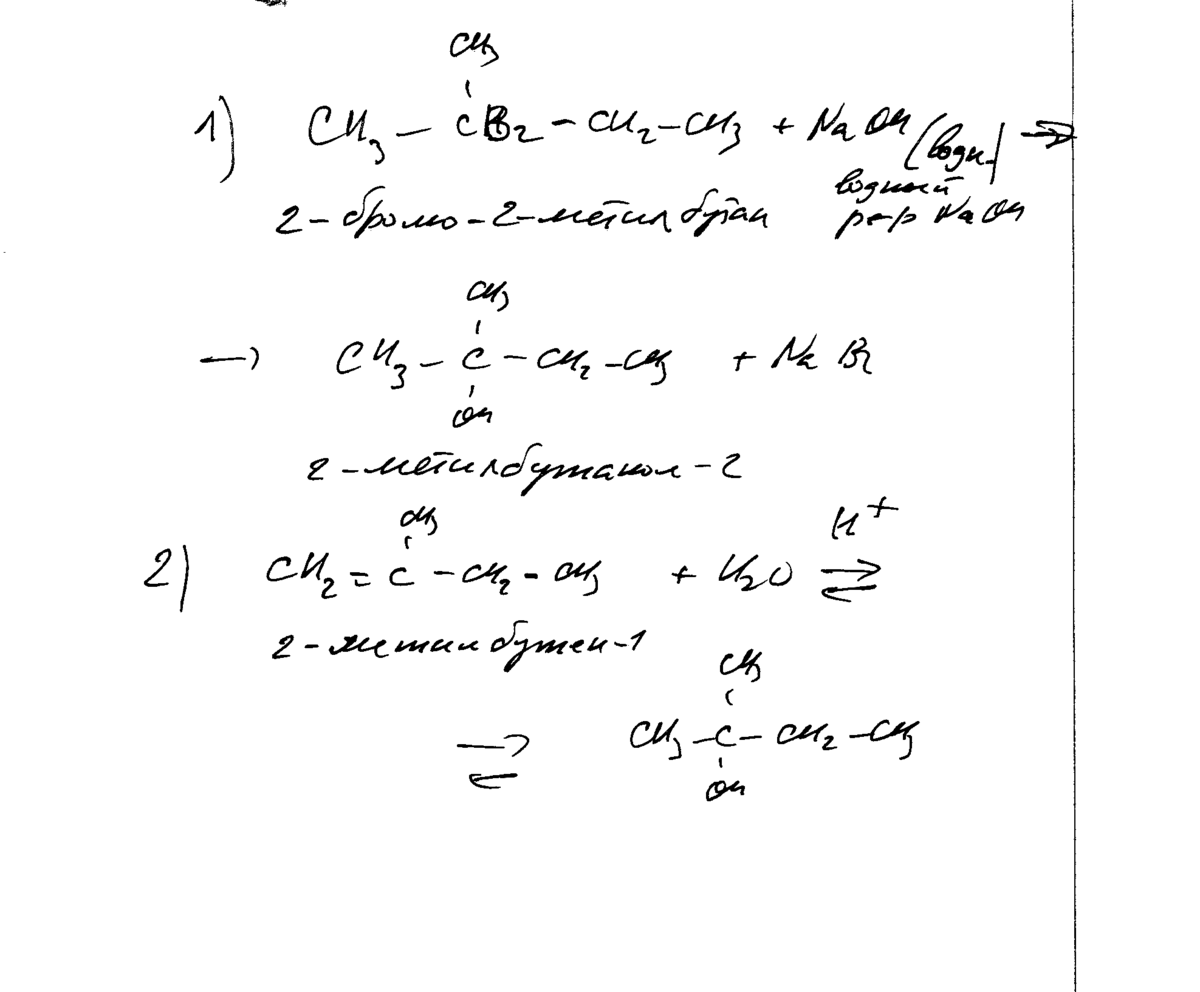 CH3
1) CH3 – CBr – CH2 – CH3 + NaOH (водн.) →
2-бромо-2-метилбутан водный
р-р NaOH
CH3
→ CH3 – C – CH2 – CH3 + NaBr
OH
2-метилбутанол-2
CH3
H+
2) CH2 = C – CH2 – CH3 + H2O ⇌
2-метилбутен-1
CH3
⇌ CH3 – C – CH2 – CH3
OH